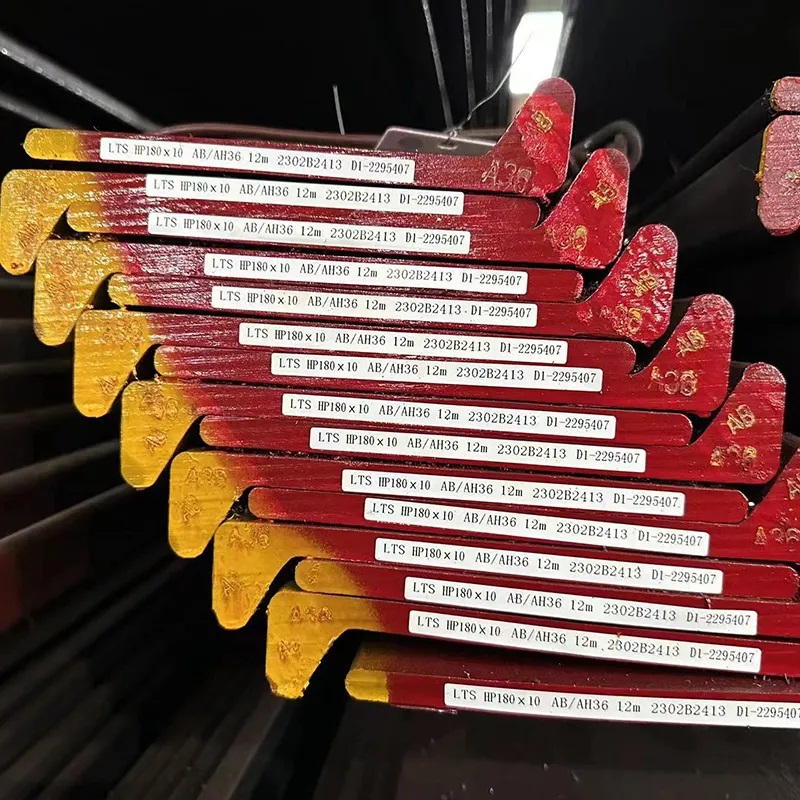 LTS HP180×10 AB/AH36 12m 2302B2413 D1-2295407
A36
LTS HP180×10 AB/AH36 12m 2302B2413 D1-2295407
LTS HP180×10 AB/AH36 12m 2302B2413 D1-2295407
LTS HP180×10 AB/AH36 12m 2302B2413 D1-2295407
LTS HP180×10 AB/AH36 12m 2302B2413 D1-2295407
LTS HP180×10 AB/AH36 12m 2302B2413 D1-2295407
AB
LTS HP180×10 AB/AH36 12m 2302B2413 D1-2295407
A36
LTS HP180×10 AB/AH36 12m 2302B2413 D1-2295407
AB
LTS HP180×10 AB/AH36 12m 2302B2413 D1-2295407
LTS HP180×10 AB/AH36 12m 2302B2413 D1-2295407
A36
LTS HP180×10 AB/AH36 12m 2302B2413 D1-2295407
A36
LTS HP180×10 AB/AH36 12m 2302B2413 D1-2295407
A36
LTS HP180×10 AB/AH36 12m 2302B2413 D1-2295407
A36
LTS HP180×10 AB/AH36 12m 2302B2413 D1-2295407
LTS HP180×10 AB/AH36 12m 2302B2413 D1-2295407